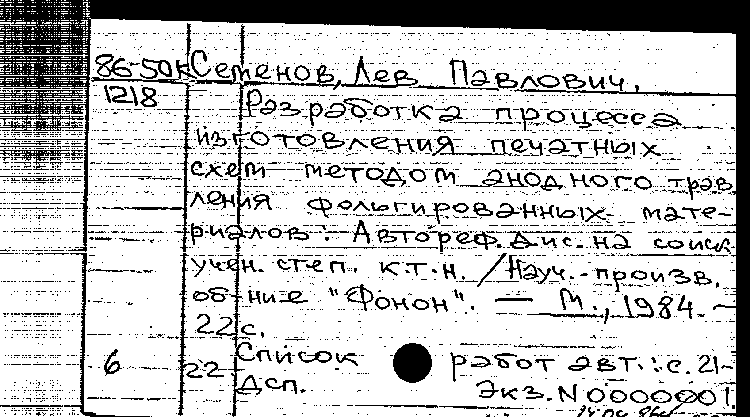 86-50к Семенов, Лев Павлович.
1218 Разработка процесса
изготовления печатных
схем методом анодного трав
ления фольгированных мате-
риалов: Автореф. дис. на соиск
учен. степ. к.т.н. / Науч.-произв.
об-ние "Фонон". — М., 1984. -
22 с.
6 Список работ авт.: с. 21-
22 Дсп. Экз. N 0000001.